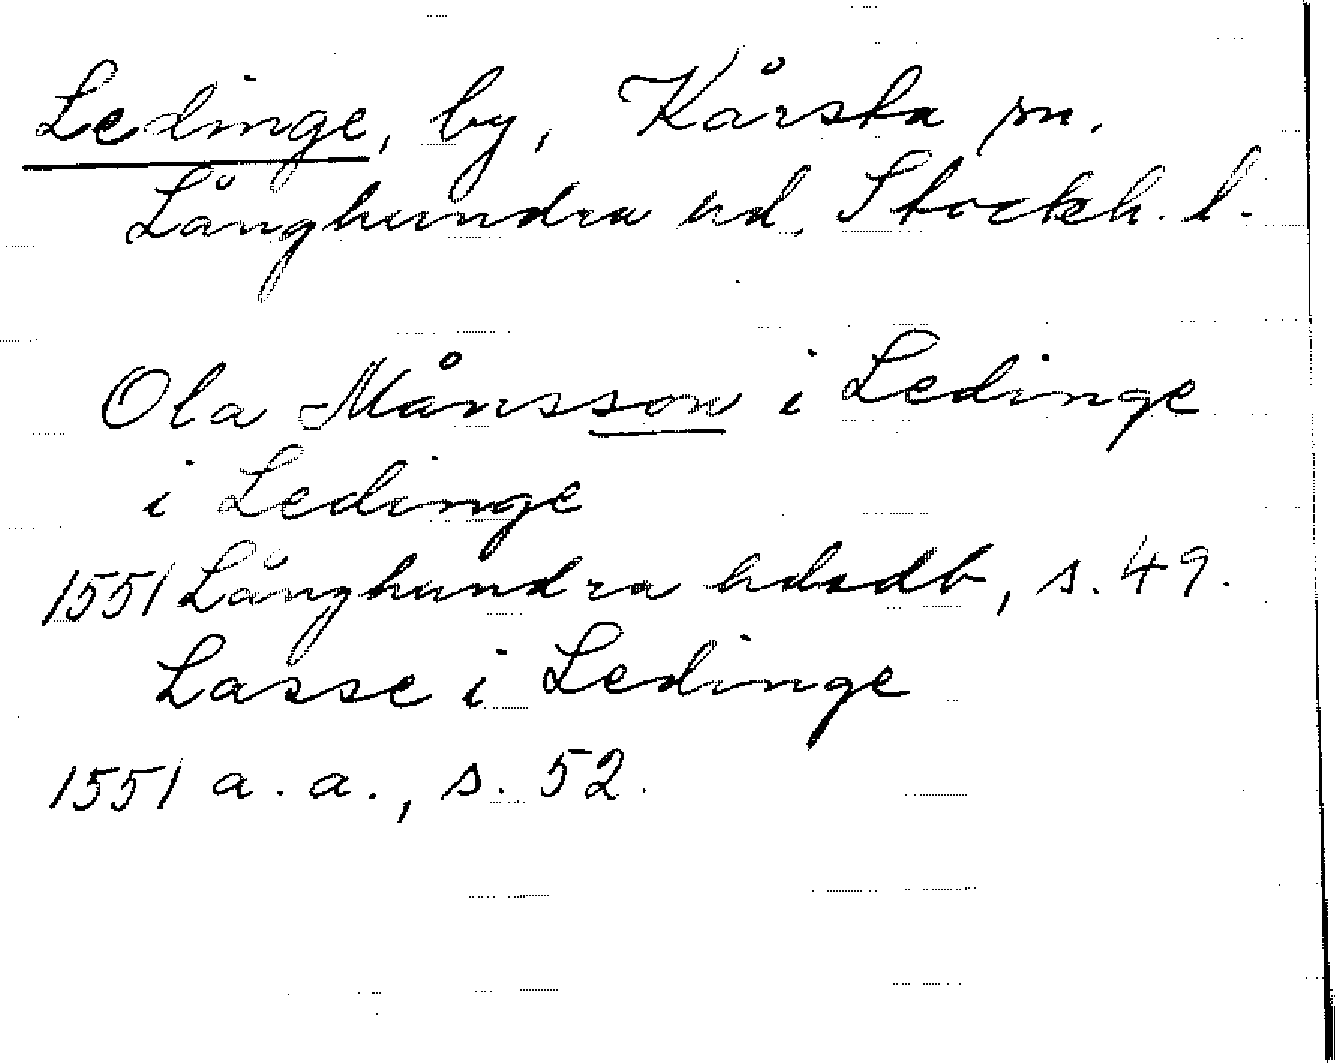 Ledinge, by, Kårsta sn.
Långhundra hd. Stockh. l.
Ola Månsson i Ledinge
i Ledinge
1551 Långhundra hdsdb, s. 49.
Lasse i Ledinge
1551 a. a., s. 52.